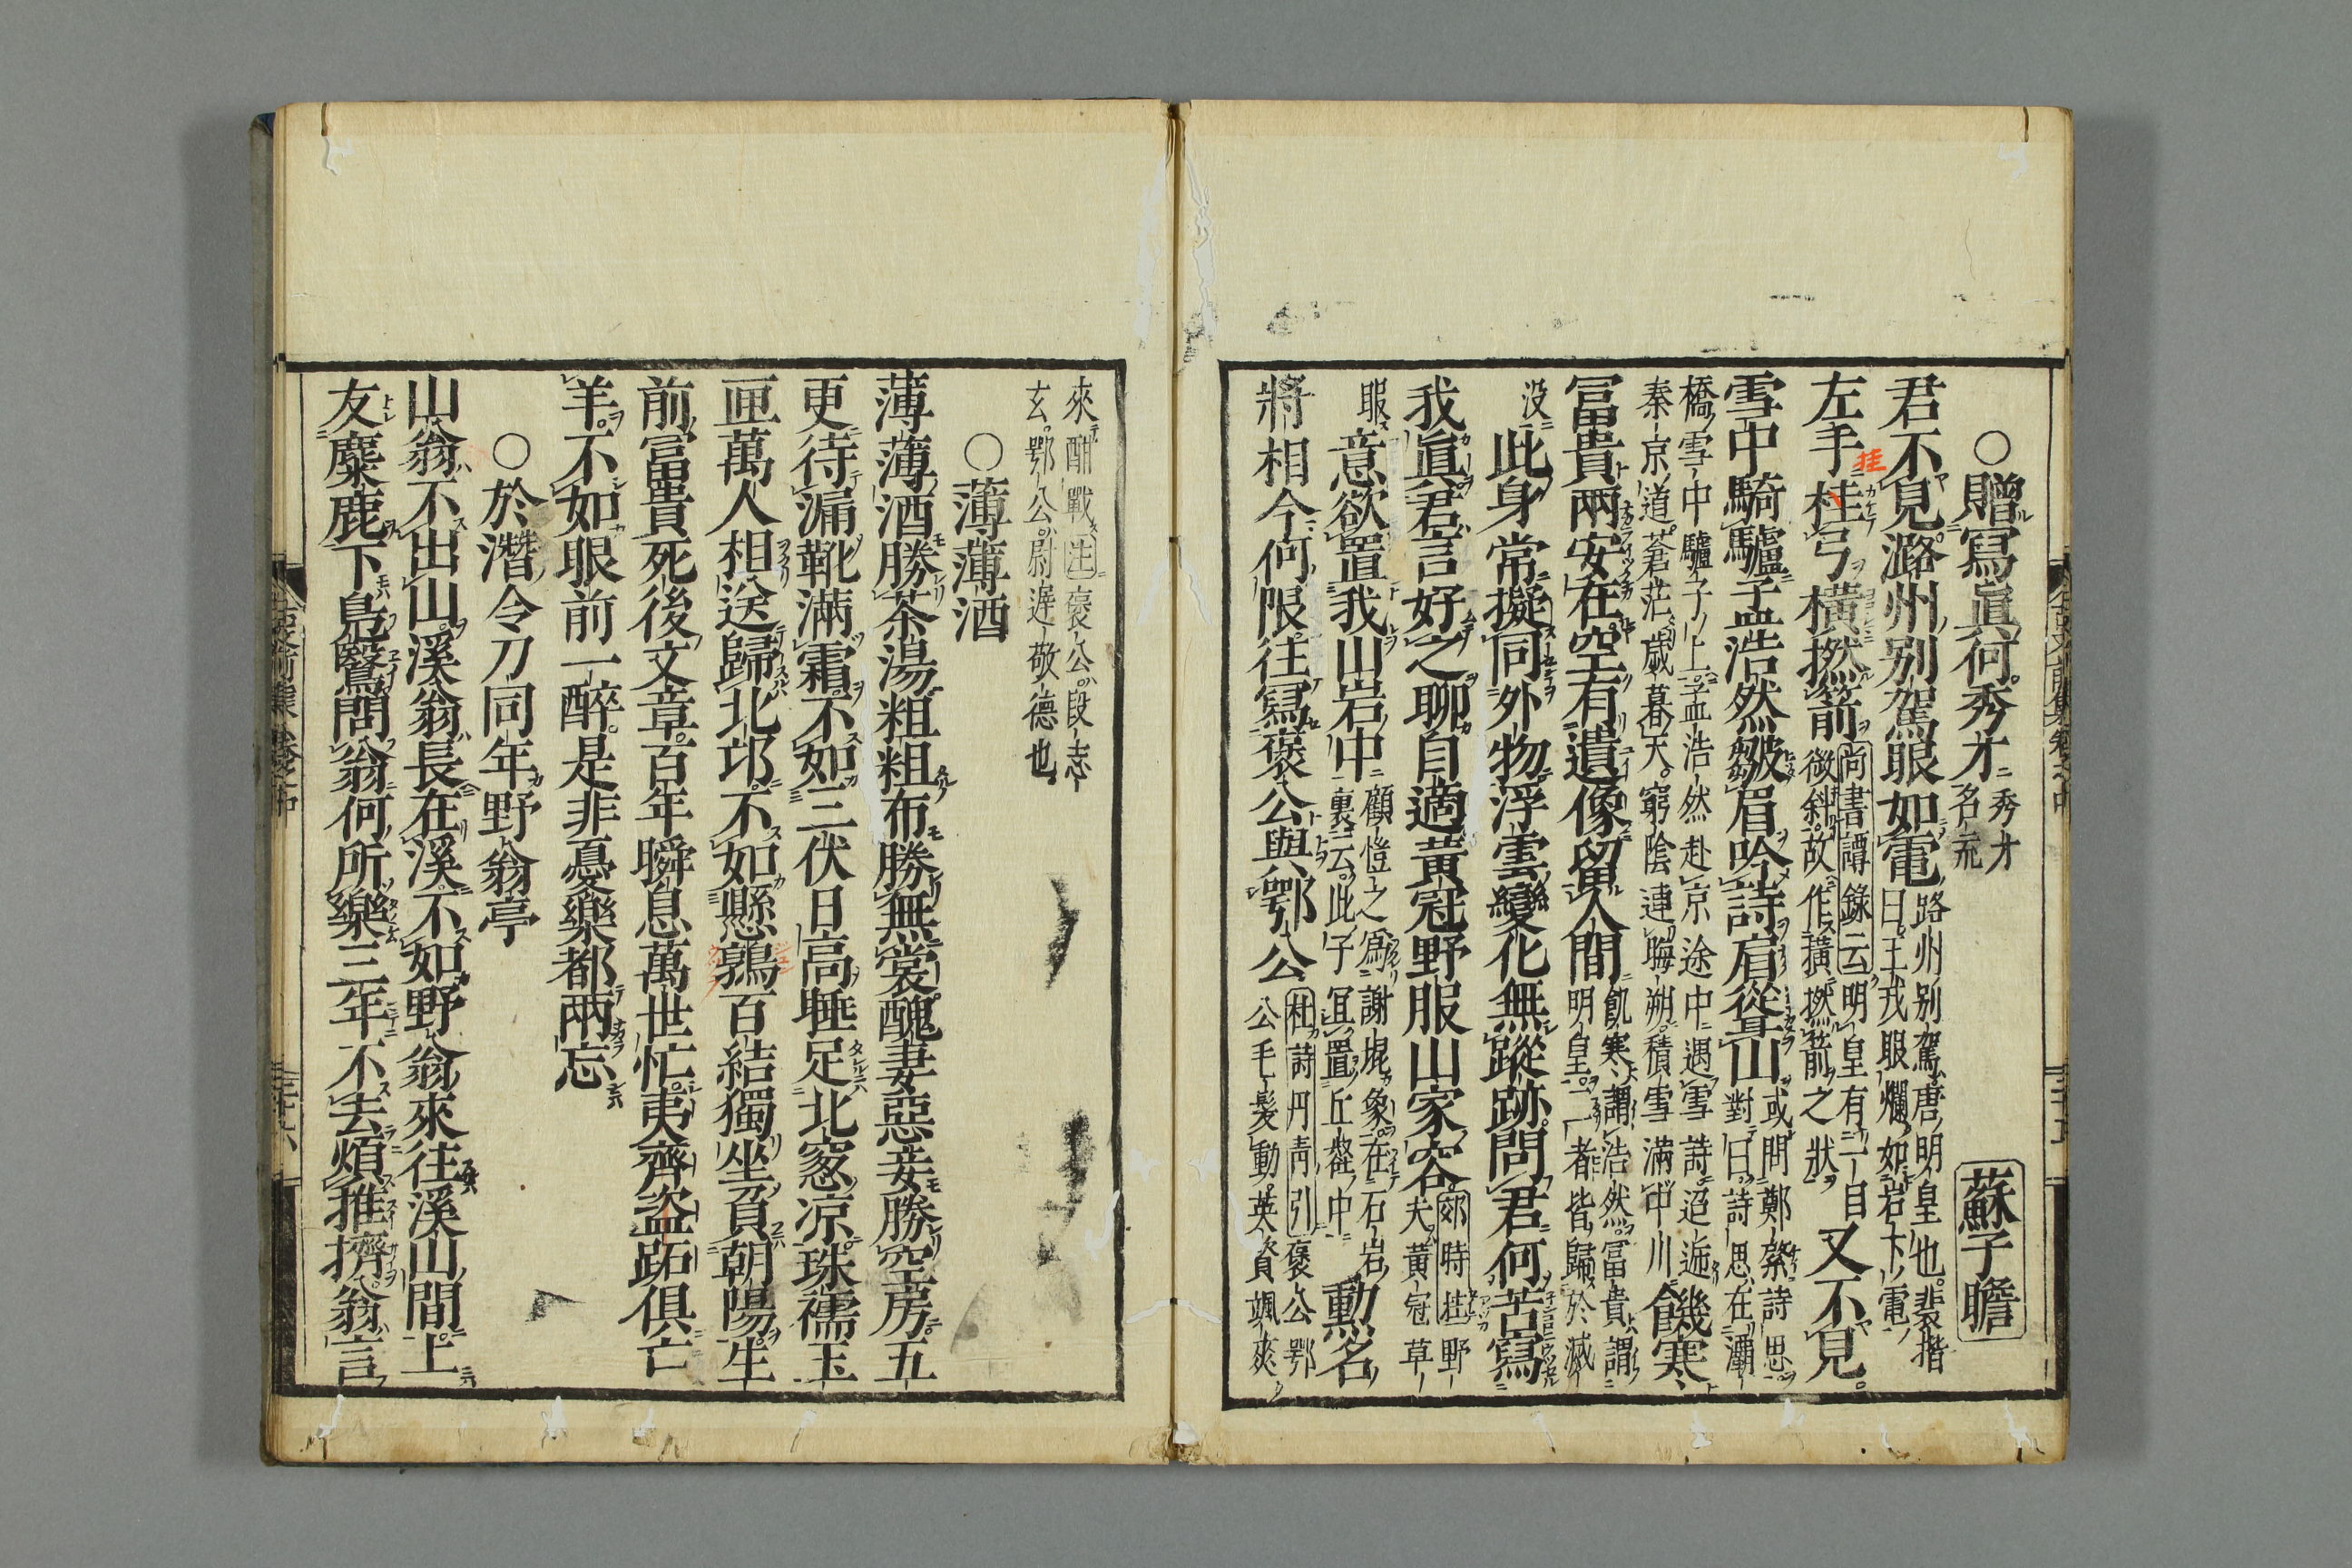 ○贈寫眞何秀才 秀才名充 蘇子瞻
君不見潞州別駕眼如電 路州別駕唐明皇也裴揩曰王戎眼爛如岩下電
左手桂弓橫撚箭 尚書譚錄云明皇有一目微斜故作橫撚箭之狀 又不見
挂
雪中騎驢孟浩然皺眉吟詩肩聳山 或問鄭綮詩思對曰詩思在灞
橋雪中驢子上孟浩然赴京途中遇雪詩迢遞秦京道蒼茫歲暮天窮陰連晦朔積雪滿中川 饑寒
冨貴兩安在空有遺像留人間 飢寒謂浩然冨貴謂明皇二者皆歸於滅
没 此身常擬同外物浮雲變化無蹤跡問君何苦寫
我眞君言好之聊自適黃冠野服山家容 郊時挂野夫黃冠草
服 意欲置我山岩中 顧愷之為謝堒象在石岩裏云此子宜置丘壑中 動名
將相今何限往寫褒公與鄂公 杜詩丹青引褒公鄂公毛髮動英資颯爽
來酣戰注褒公段志玄鄂公尉遲敬德也
○薄薄酒
薄薄酒勝茶湯粗粗布勝無裳醜妻惡妾勝空房五
更待漏靴滿霜不如三伏日高睡足北窓凉珠襦玉
匣萬人相送歸北邙不如懸鶉百結獨坐負朝陽生
前冨貴死後文章百年瞬息萬世忙夷齊盜跖俱亡
羊不如眼前一醉是非憂樂都兩忘
○於濳令刀同年野翁亭
山翁不出山溪翁長在溪不如野翁來往溪山間上
友麋鹿下鳧鷖問翁何所樂三年不去煩推擠翁言